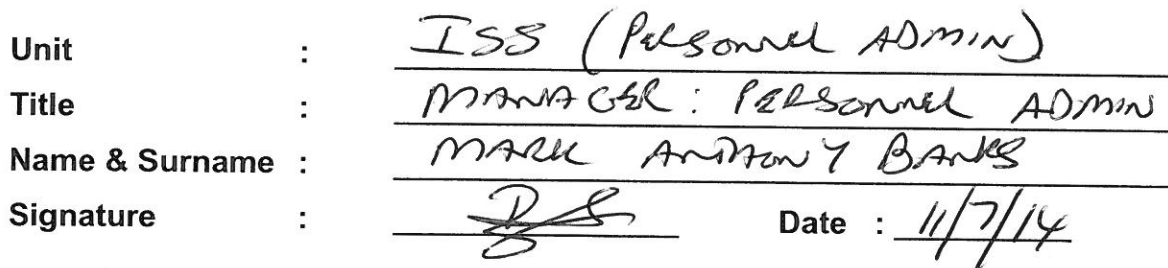 Unit : ISS (Personnel ADMIN)
Title : MANAGER: PERSONNEL ADMIN
Name & Surname : MARK ANTHONY BANKS
Signature : Date : 11/7/14